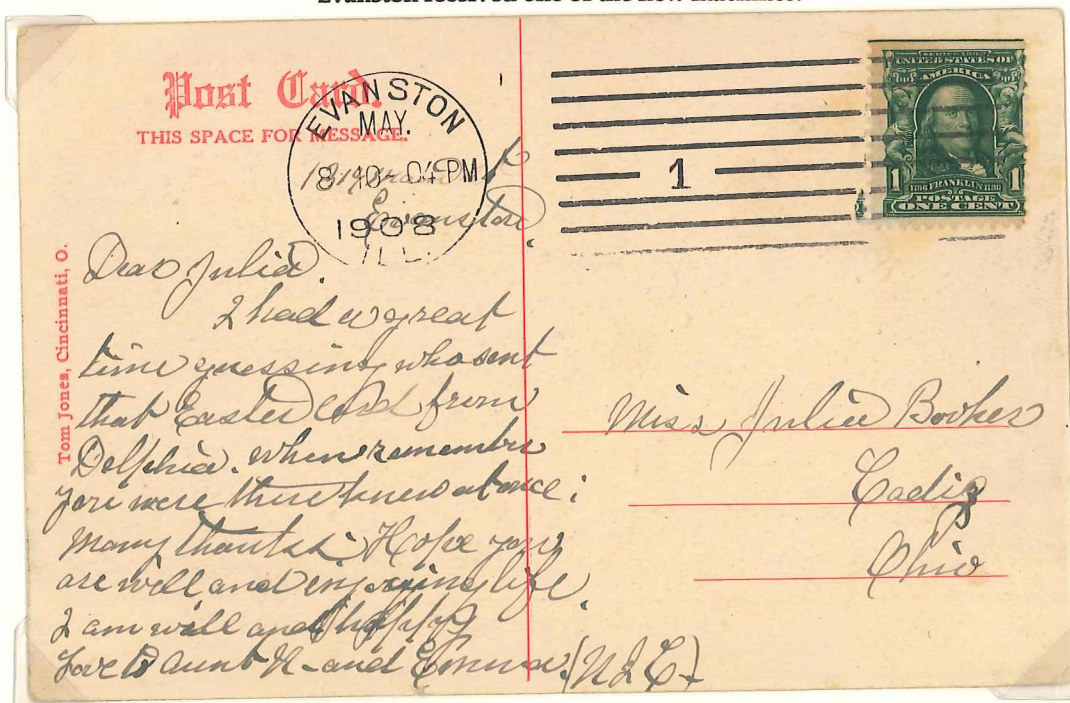 Post Card.
THIS SPACE FOR MESSAGE.
EVANSTON
MAY.
8 10-04 PM
1908
ILL.
1
UNITED STATES OF
AMERICA
1 1706 FRANKLIN 1790 1
POSTAGE
ONE CENT
Tom Jones, Cincinnati, O.
Evanston
Dear Julia.
I had a great
time guessing who sent
that Easter Card from
Delphia. when remember
you were there knew at once
Many thanks. Hope you
are well and enjoying life.
I am well and happy
Love to Aunt K- and Emma. (N.L.C)
Miss Julia Booker
Cadiz
Ohio